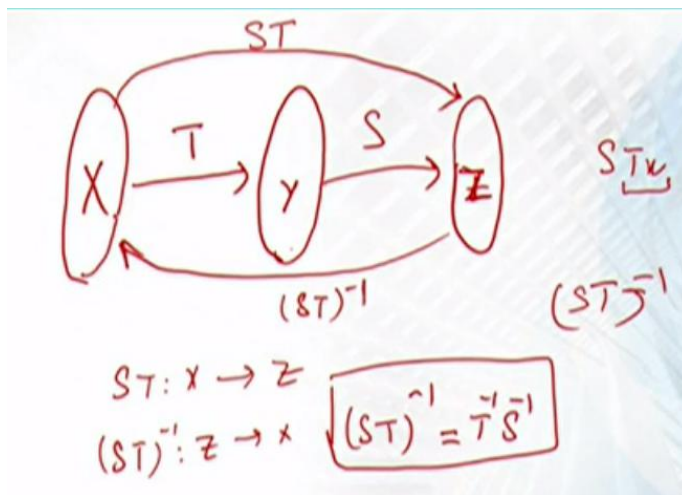 ST
X T Y S Z
STx
(ST)⁻¹
(ST)⁻¹
ST: X → Z
(ST)⁻¹: Z → X
(ST)⁻¹ = T⁻¹S⁻¹